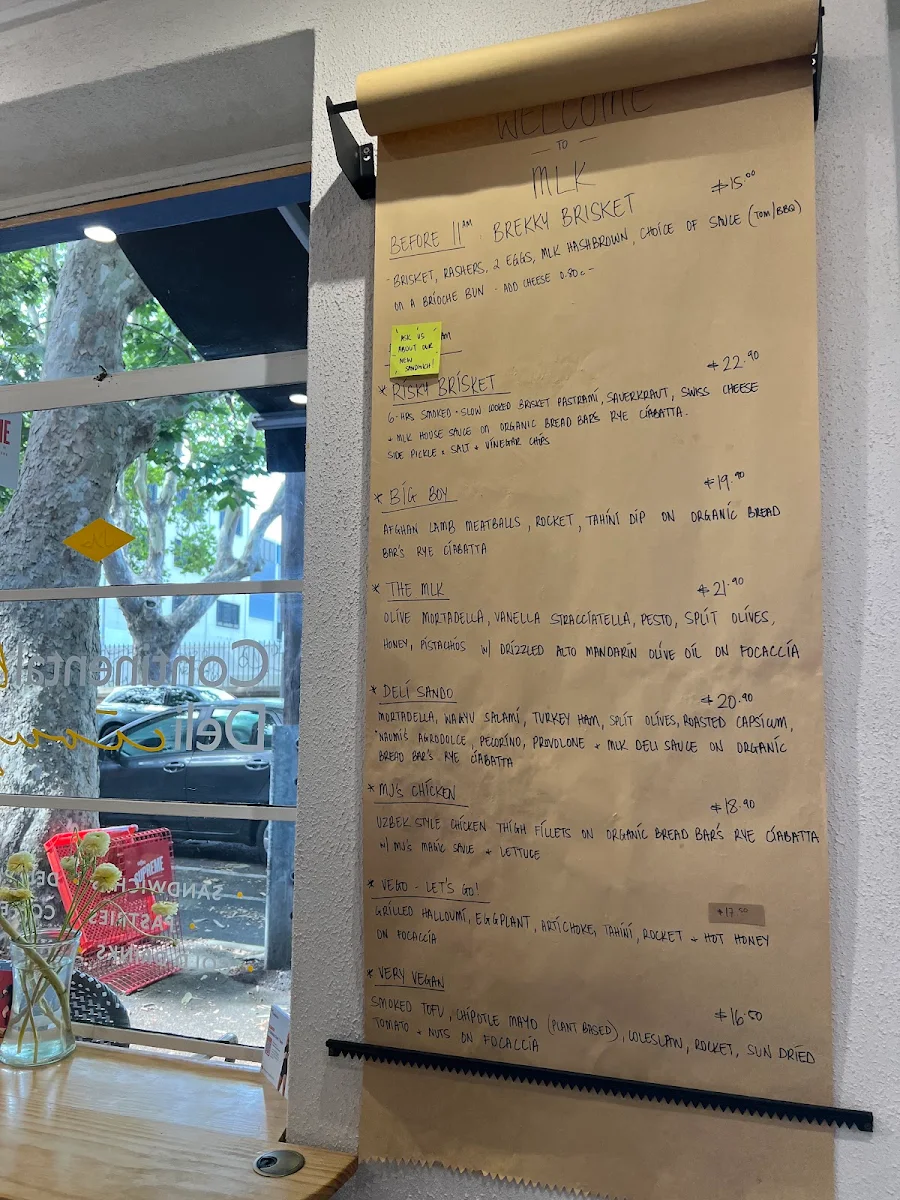 WELCOME
TO
MLK
BEFORE 11AM BREKKY BRISKET $15.00
- BRISKET, RASHERS, 2 EGGS, MLK HASHBROWN, CHOICE OF SAUCE (TOM/BBQ)
ON A BRIOCHE BUN - ADD CHEESE 0.80c -
ASK US
ABOUT OUR
NEW
SANDWICH!
AM
* RISKY BRISKET $22.90
6-HRS SMOKED + SLOW COOKED BRISKET PASTRAMI, SAUERKRAUT, SWISS CHEESE
+ MLK HOUSE SAUCE ON ORGANIC BREAD BAR'S RYE CIABATTA.
SIDE PICKLE & SALT + VINEGAR CHIPS
* BIG BOY $19.90
AFGHAN LAMB MEATBALLS, ROCKET, TAHINI DIP ON ORGANIC BREAD
BAR'S RYE CIABATTA
* THE MLK $21.90
OLIVE MORTADELLA, VANELLA STRACCIATELLA, PESTO, SPLIT OLIVES,
HONEY, PISTACHIOS W/ DRIZZLED ALTO MANDARIN OLIVE OIL ON FOCACCIA
* DELI SANDO $20.90
MORTADELLA, WAGYU SALAMI, TURKEY HAM, SPLIT OLIVES, ROASTED CAPSICUM,
NAOMI'S AGRODOLCE, PECORINO, PROVOLONE + MLK DELI SAUCE ON ORGANIC
BREAD BAR'S RYE CIABATTA
* MJ's CHICKEN $18.90
UZBEK STYLE CHICKEN THIGH FILLETS ON ORGANIC BREAD BAR'S RYE CIABATTA
W/ MJ's MAGIC SAUCE + LETTUCE
* VEGO - LET'S GO! $17.50
GRILLED HALLOUMI, EGGPLANT, ARTICHOKE, TAHINI, ROCKET + HOT HONEY
ON FOCACCIA
* VERY VEGAN $16.50
SMOKED TOFU, CHIPOTLE MAYO (PLANT BASED), COLESLAW, ROCKET, SUN DRIED
TOMATO + NUTS ON FOCACCIA
Continental
Deli
SUPREME
SANDWICHES
PASTRIES